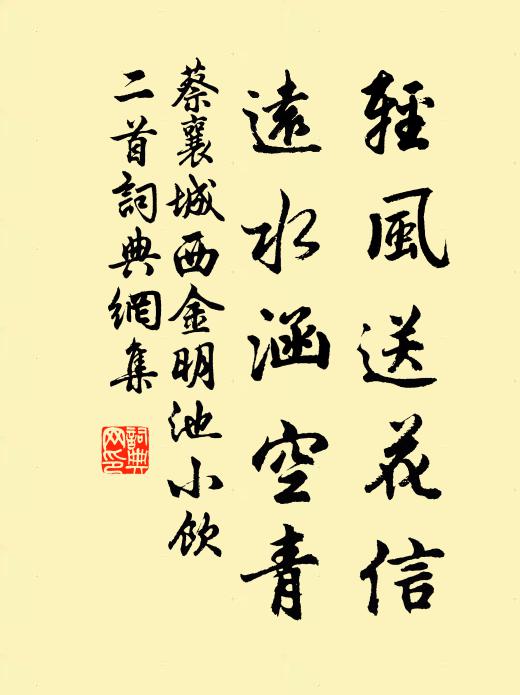 輕風送花信
遠水涵空青
蔡襄城西金明池小飲
二首詞典網集
詞典網印